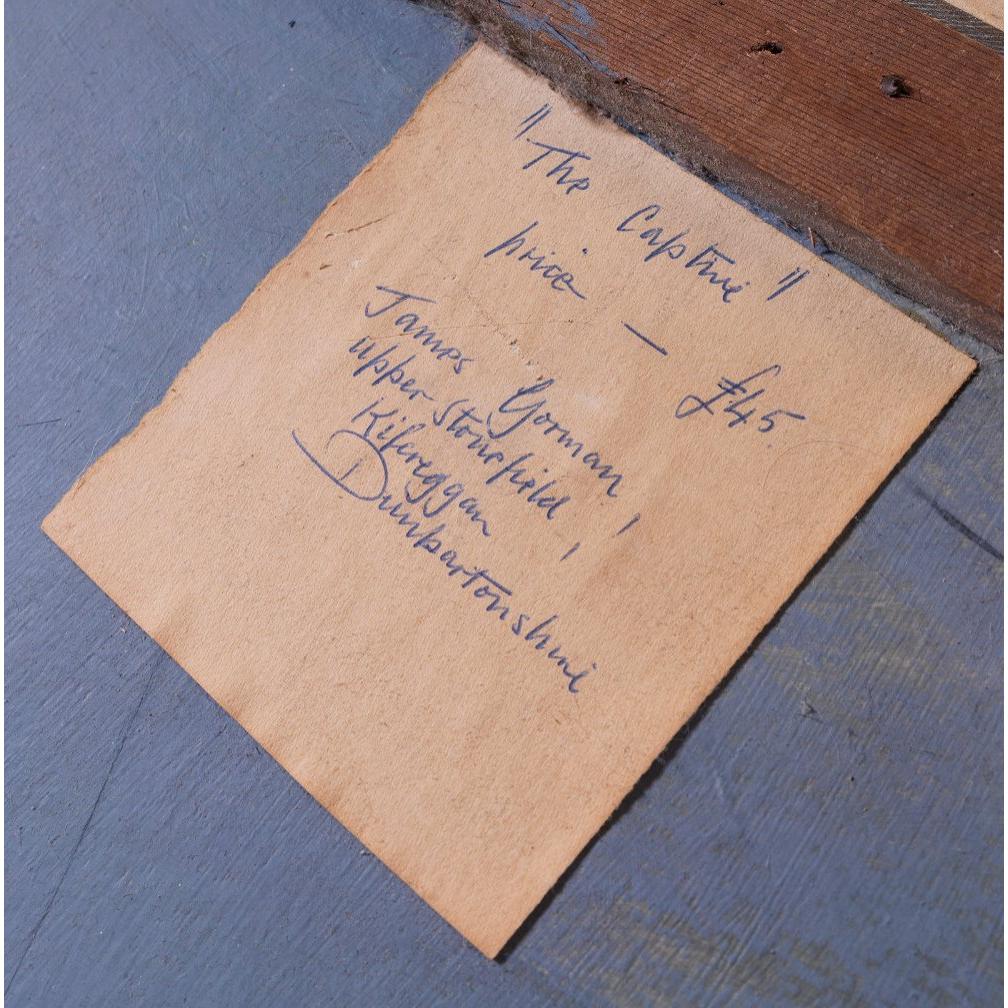 "The Captive"
price — £45.
James Gorman,
upper Stonefield,
Kilcreggan
Dunbartonshire